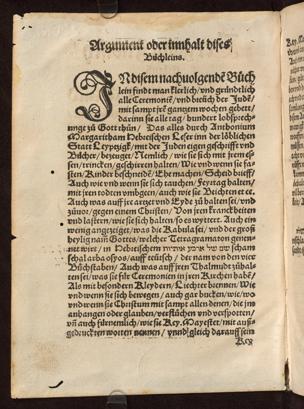 Argument oder innhalt dises
Büchleins.
IN disem nachuolgende Büch
lein findt man klerlich / vnd gründtlich
alle Ceremonie / vnd breüch der Jude /
mit sampt jrē gantzem wochen gebett /
darinn sie alle tag / hundert lobsprech-
unge zů Gott thůn / Das alles durch Anthonium
Margaritham Hebreischen Leser inn der löblichen
Statt Leypzigk / mit der Juden eigen geschrifft vnd
Bücher / bezeuget / Nemlich / wie sie sich mit jrem es-
sen / trincken / geschirren halten / Wie vnd wenn sie fa-
sten / Kinder beschneidē / Ehe machen / Scheid brieff /
Auch wie vnd wenn sie sich rauchen / Feyrtag halten /
mit jren todten vmbgen / auch wie sie Beichten etc.
Auch was auff jre artzet vnd Eyde zů halten sei / vnd
zůuor / gegen einem Christen / Von jren kranckheiten
vnd lastern / wie sie sich halten so es wytert. Auch ein
wenig angezeiget / was die Kabula sei / vnd der groß
heylig nam Gottes / welcher Tetragramaton genen-
net wirt / in Hebreischem
schal arba osyos / auff teütsch / der nam von den vier
Bůchstaben / Auch was auff jren Thalmudt zů hal-
ten sei / was sie für Ceremonien in jren Kirchen habē /
Als mit besondern Kleydern / Liechter brennen / Wie
vnd wenn sie sich bewegen / auch gar bucken / wie / wo
vnd wenn sie Christum mit sampt allen denen / die jm
anhangen oder glauben / verflůchen vnd verspotten /
vñ auch fürnemlich / wie sie Key. Mayestet / mit auß-
gedruckten worten nennen / vnnd gleich darauff sein
Key